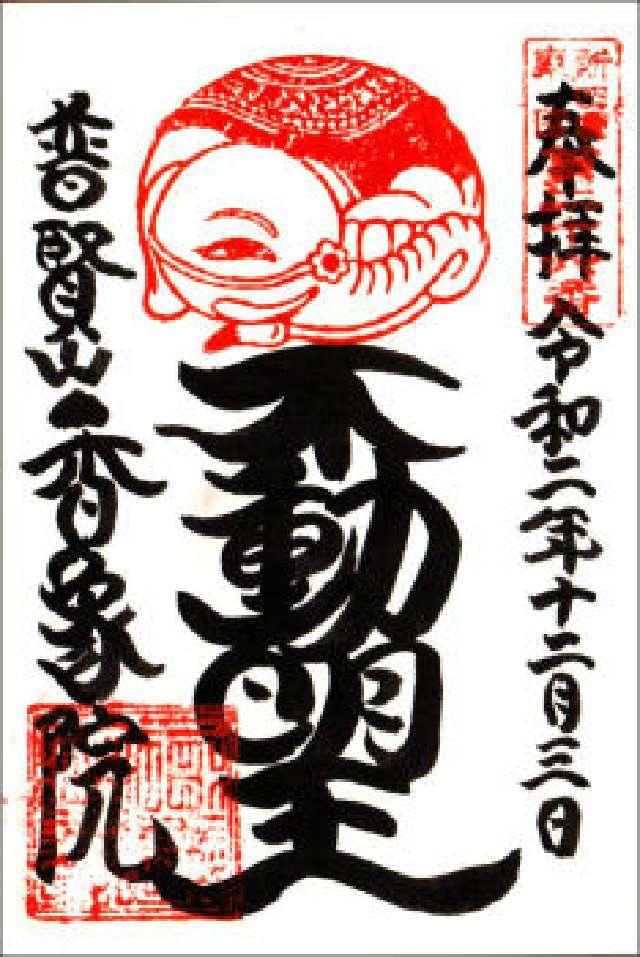 奉拝
令和二年十二月三日
不動明王
普賢山香象院